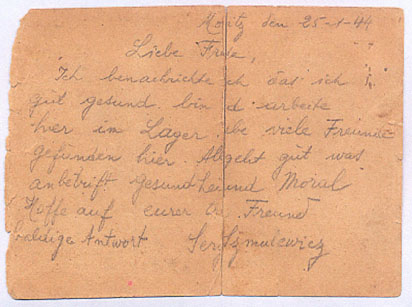 Moritz den 25-1-44
Liebe
Ich benachrichte das ich
gut gesund. bin d. arbeite
hier im Lager. be viele Freunde
gefunden hier. Al geht gut was
anbetrift gesundhe und Moral
Hoffe auf eurer Freund
baldige Antwort.